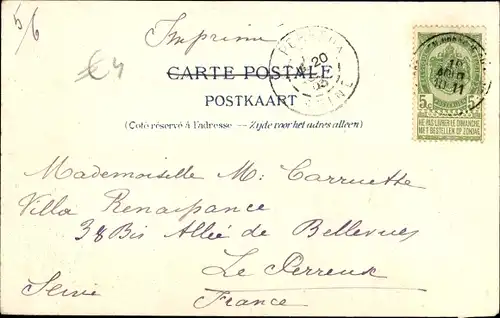 5/6
Imprimé
€4
CARTE POSTALE
POSTKAART
(Coté réservé à l'adresse — Zijde voor het adres alleen)
20
SEINE
5c
NE PAS LIVRER LE DIMANCHE
NIET BESTELLEN OP ZONDAG
Mademoiselle M: Carruette
Villa Renaissance
38 Bis Allée de Bellevues
Le Perreux
Seine
France